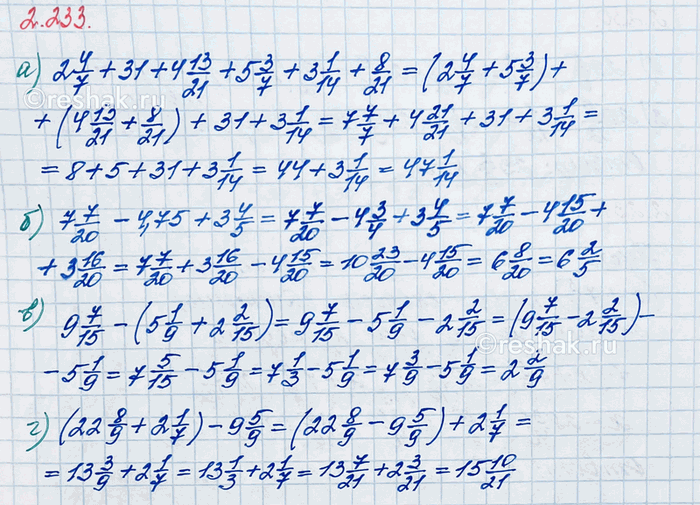 2.233.
а) 2 4/7 + 31 + 4 13/21 + 5 3/7 + 3 1/14 + 8/21 = (2 4/7 + 5 3/7) +
+ (4 13/21 + 8/21) + 31 + 3 1/14 = 7 7/7 + 4 21/21 + 31 + 3 1/14 =
= 8 + 5 + 31 + 3 1/14 = 44 + 3 1/14 = 47 1/14
б) 7 7/20 - 4,75 + 3 4/5 = 7 7/20 - 4 3/4 + 3 4/5 = 7 7/20 - 4 15/20 +
+ 3 16/20 = 7 7/20 + 3 16/20 - 4 15/20 = 10 23/20 - 4 15/20 = 6 8/20 = 6 2/5
в) 9 7/15 - (5 1/9 + 2 2/15) = 9 7/15 - 5 1/9 - 2 2/15 = (9 7/15 - 2 2/15) -
- 5 1/9 = 7 5/15 - 5 1/9 = 7 1/3 - 5 1/9 = 7 3/9 - 5 1/9 = 2 2/9
г) (22 8/9 + 2 1/7) - 9 5/9 = (22 8/9 - 9 5/9) + 2 1/7 =
= 13 3/9 + 2 1/7 = 13 1/3 + 2 1/7 = 13 7/21 + 2 3/21 = 15 10/21
reshak.ru
reshak.ru